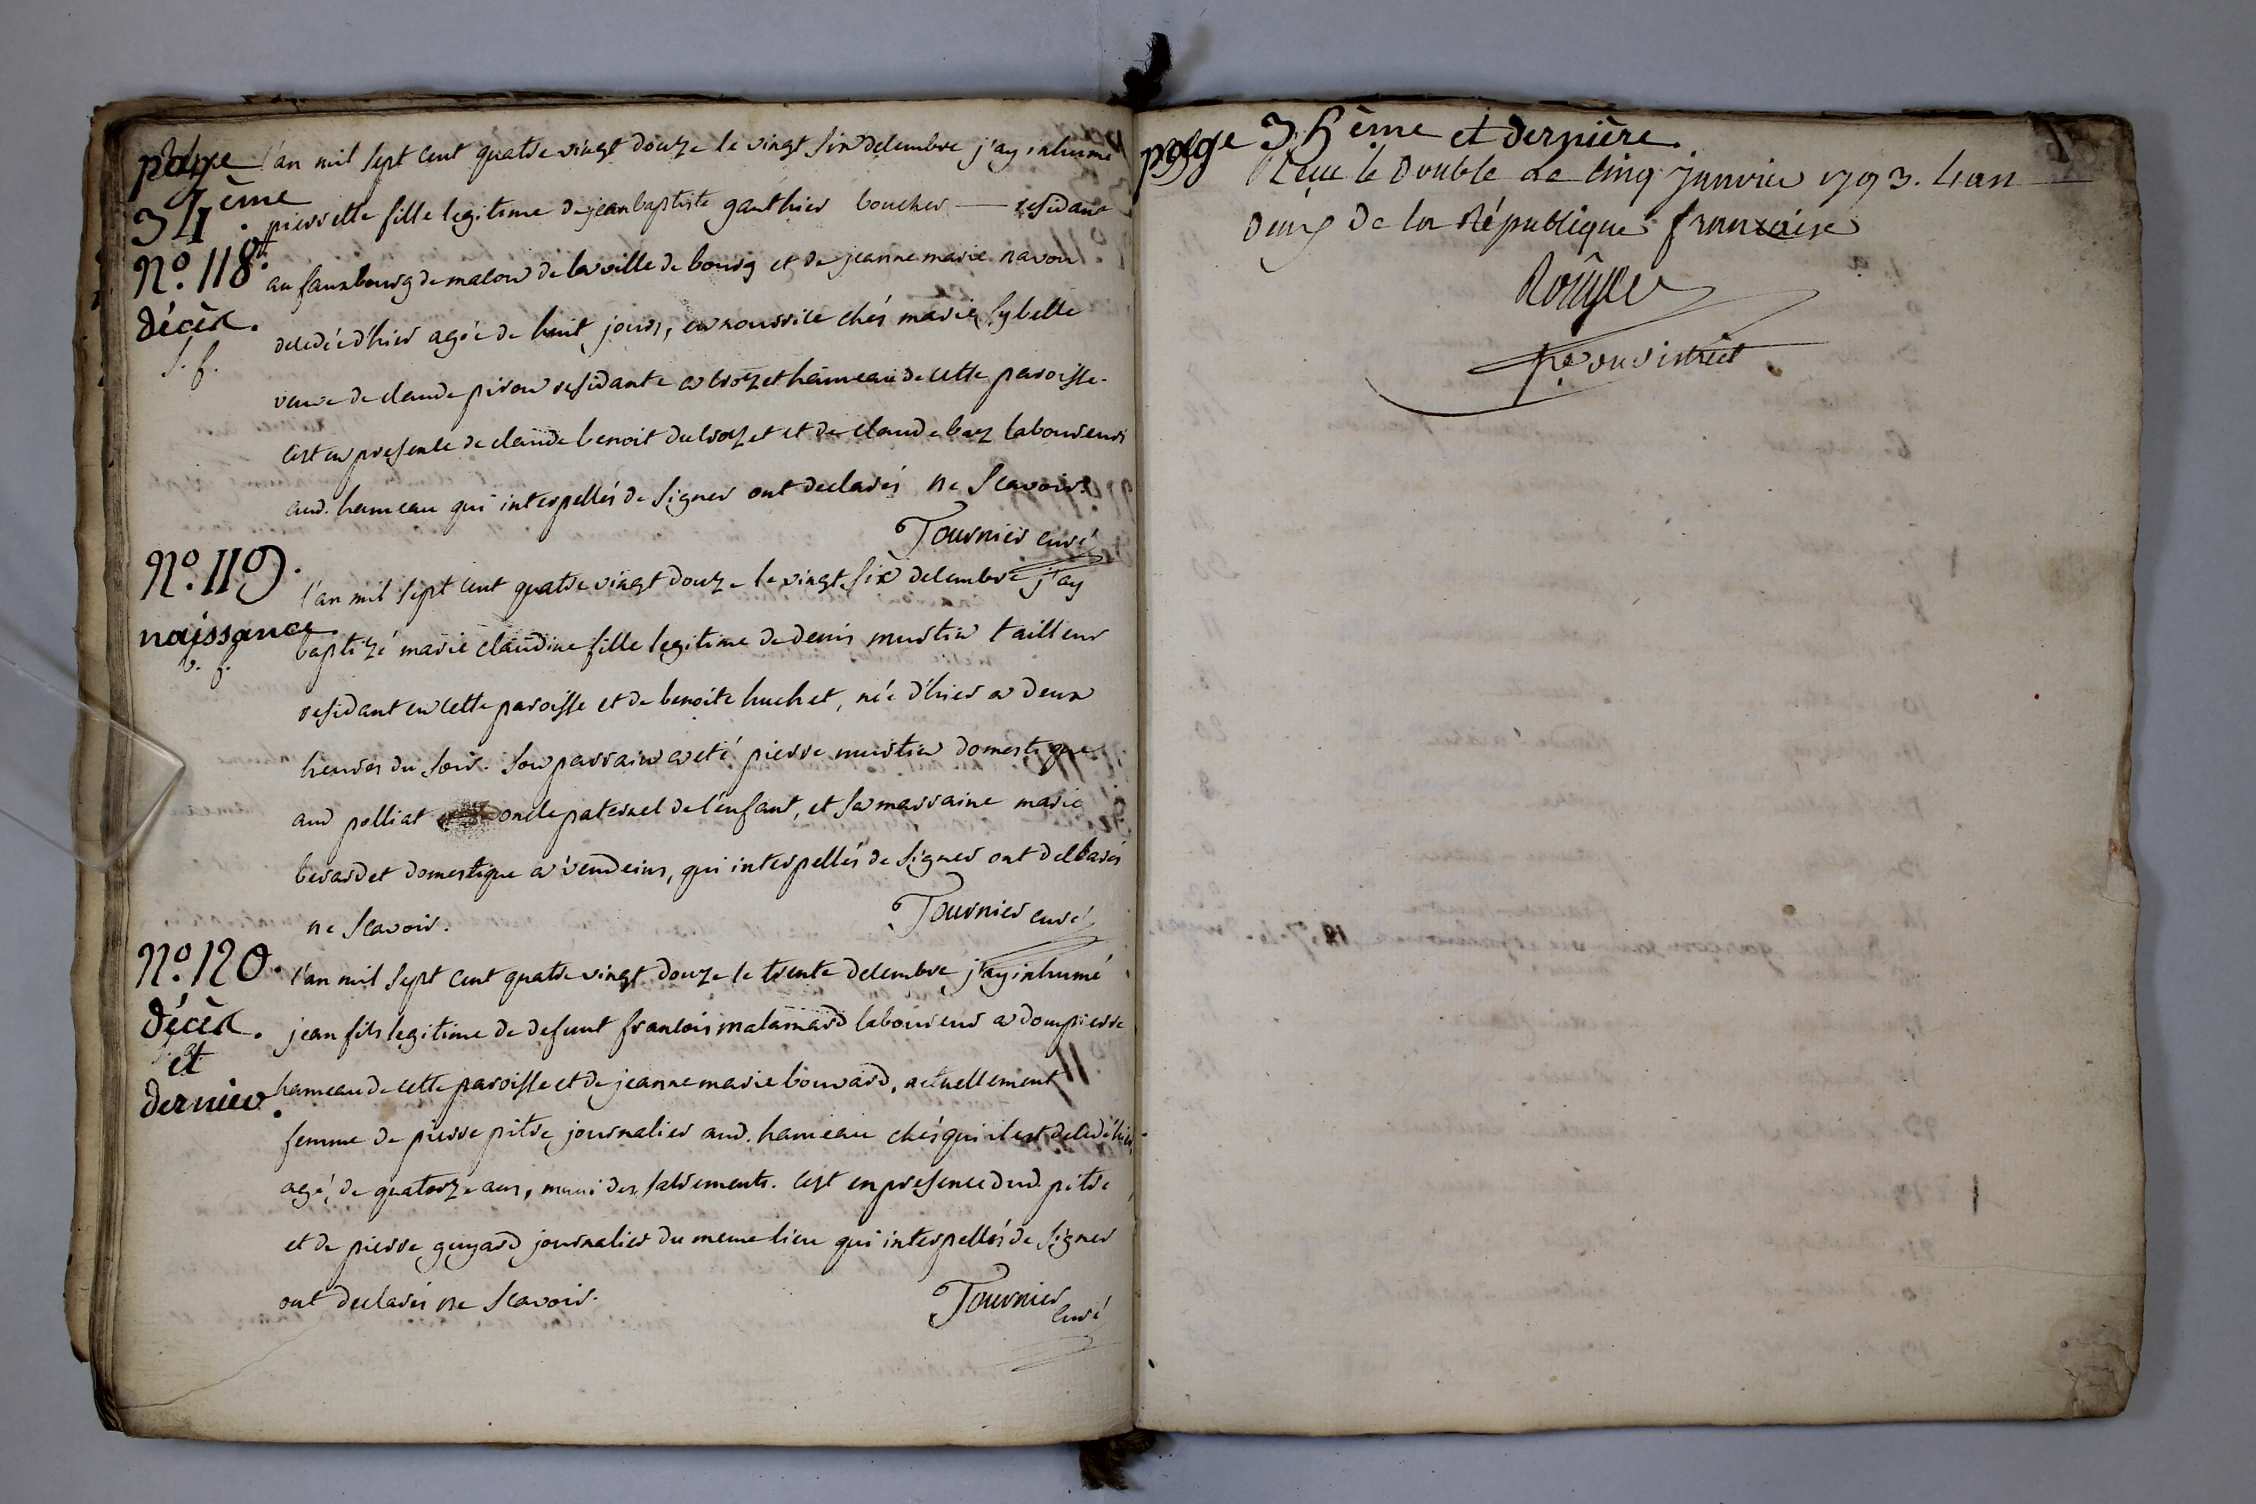 page
34.ème
N°. 118.
décèd.
S. f.
l'an mil sept cent quatre vingt douze le vingt six decembre j'ay inhumé
pierrette fille legitime de jean baptiste gauthier boucher — residant
au fauxbourg de macon de la ville de bourg et de jeanne marie navon
decedée d'hier agée de huit jours, en nourrice chés marie Sybelle
veuve de claude piron residante a crozet hameau de cette paroisse.
c'est en presence de claude benoit du crozet et de claude baz laboureurs
aud. hameau qui interpellés de signer ont declarés ne scavoir.
Tournier curé
N°. 119.
naissance.
l'an mil sept cent quatre vingt douze le vingt six decembre j'ay
baptizé marie claudine fille legitime de denis murtin tailleur
residant en cette paroisse et de benoite huchet, née d'hier a deux
heures du soir. son parrain a eté pierre murtin domestique
aud polliat oncle paternel de l'enfant, et sa marraine marie
berardet domestique a vendeins, qui interpellés de signer ont declarés
ne scavoir.
Tournier curé
N°. 120.
décèd.
et
dernier.
l'an mil sept cent quatre vingt douze le trente decembre j'ay inhumé
jean fils legitime de defunt francois matamard laboureur a dompierre
hameau de cette paroisse et de jeanne marie bouvard, actuellement
femme de pierre pitre journalier aud. hameau chés qui il est decedé hier
agé de quatorze ans, muni des sacrements. c'est en presence dud. pitre
et de pierre guyard journalier du meme lieu qui interpellés de signer
ont declarés ne scavoir.
Tournier
curé
page 35ème et dernière.
Reçu le double le cinq janvier 1793. l'an
deux de la République françoise